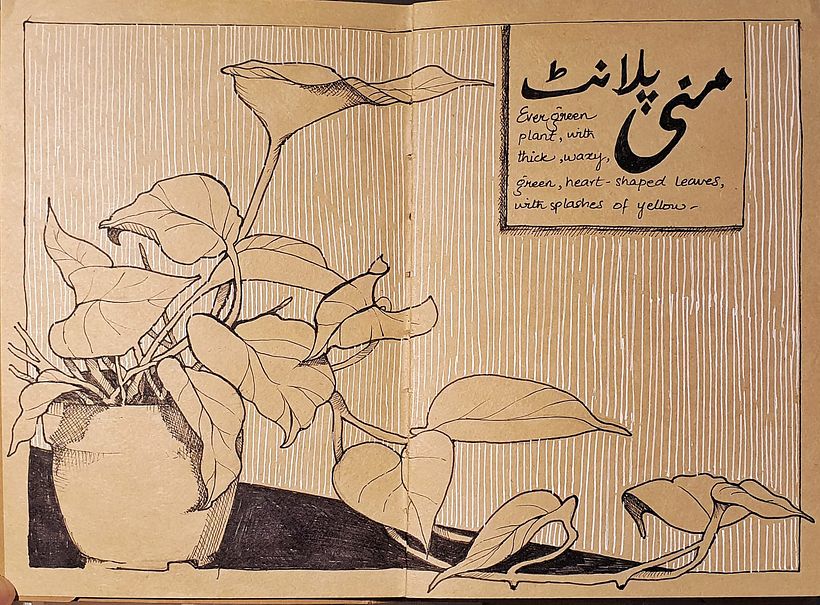 منی پلانٹ
Ever green
plant, with
thick, waxy,
green, heart-shaped leaves,
with splashes of yellow-